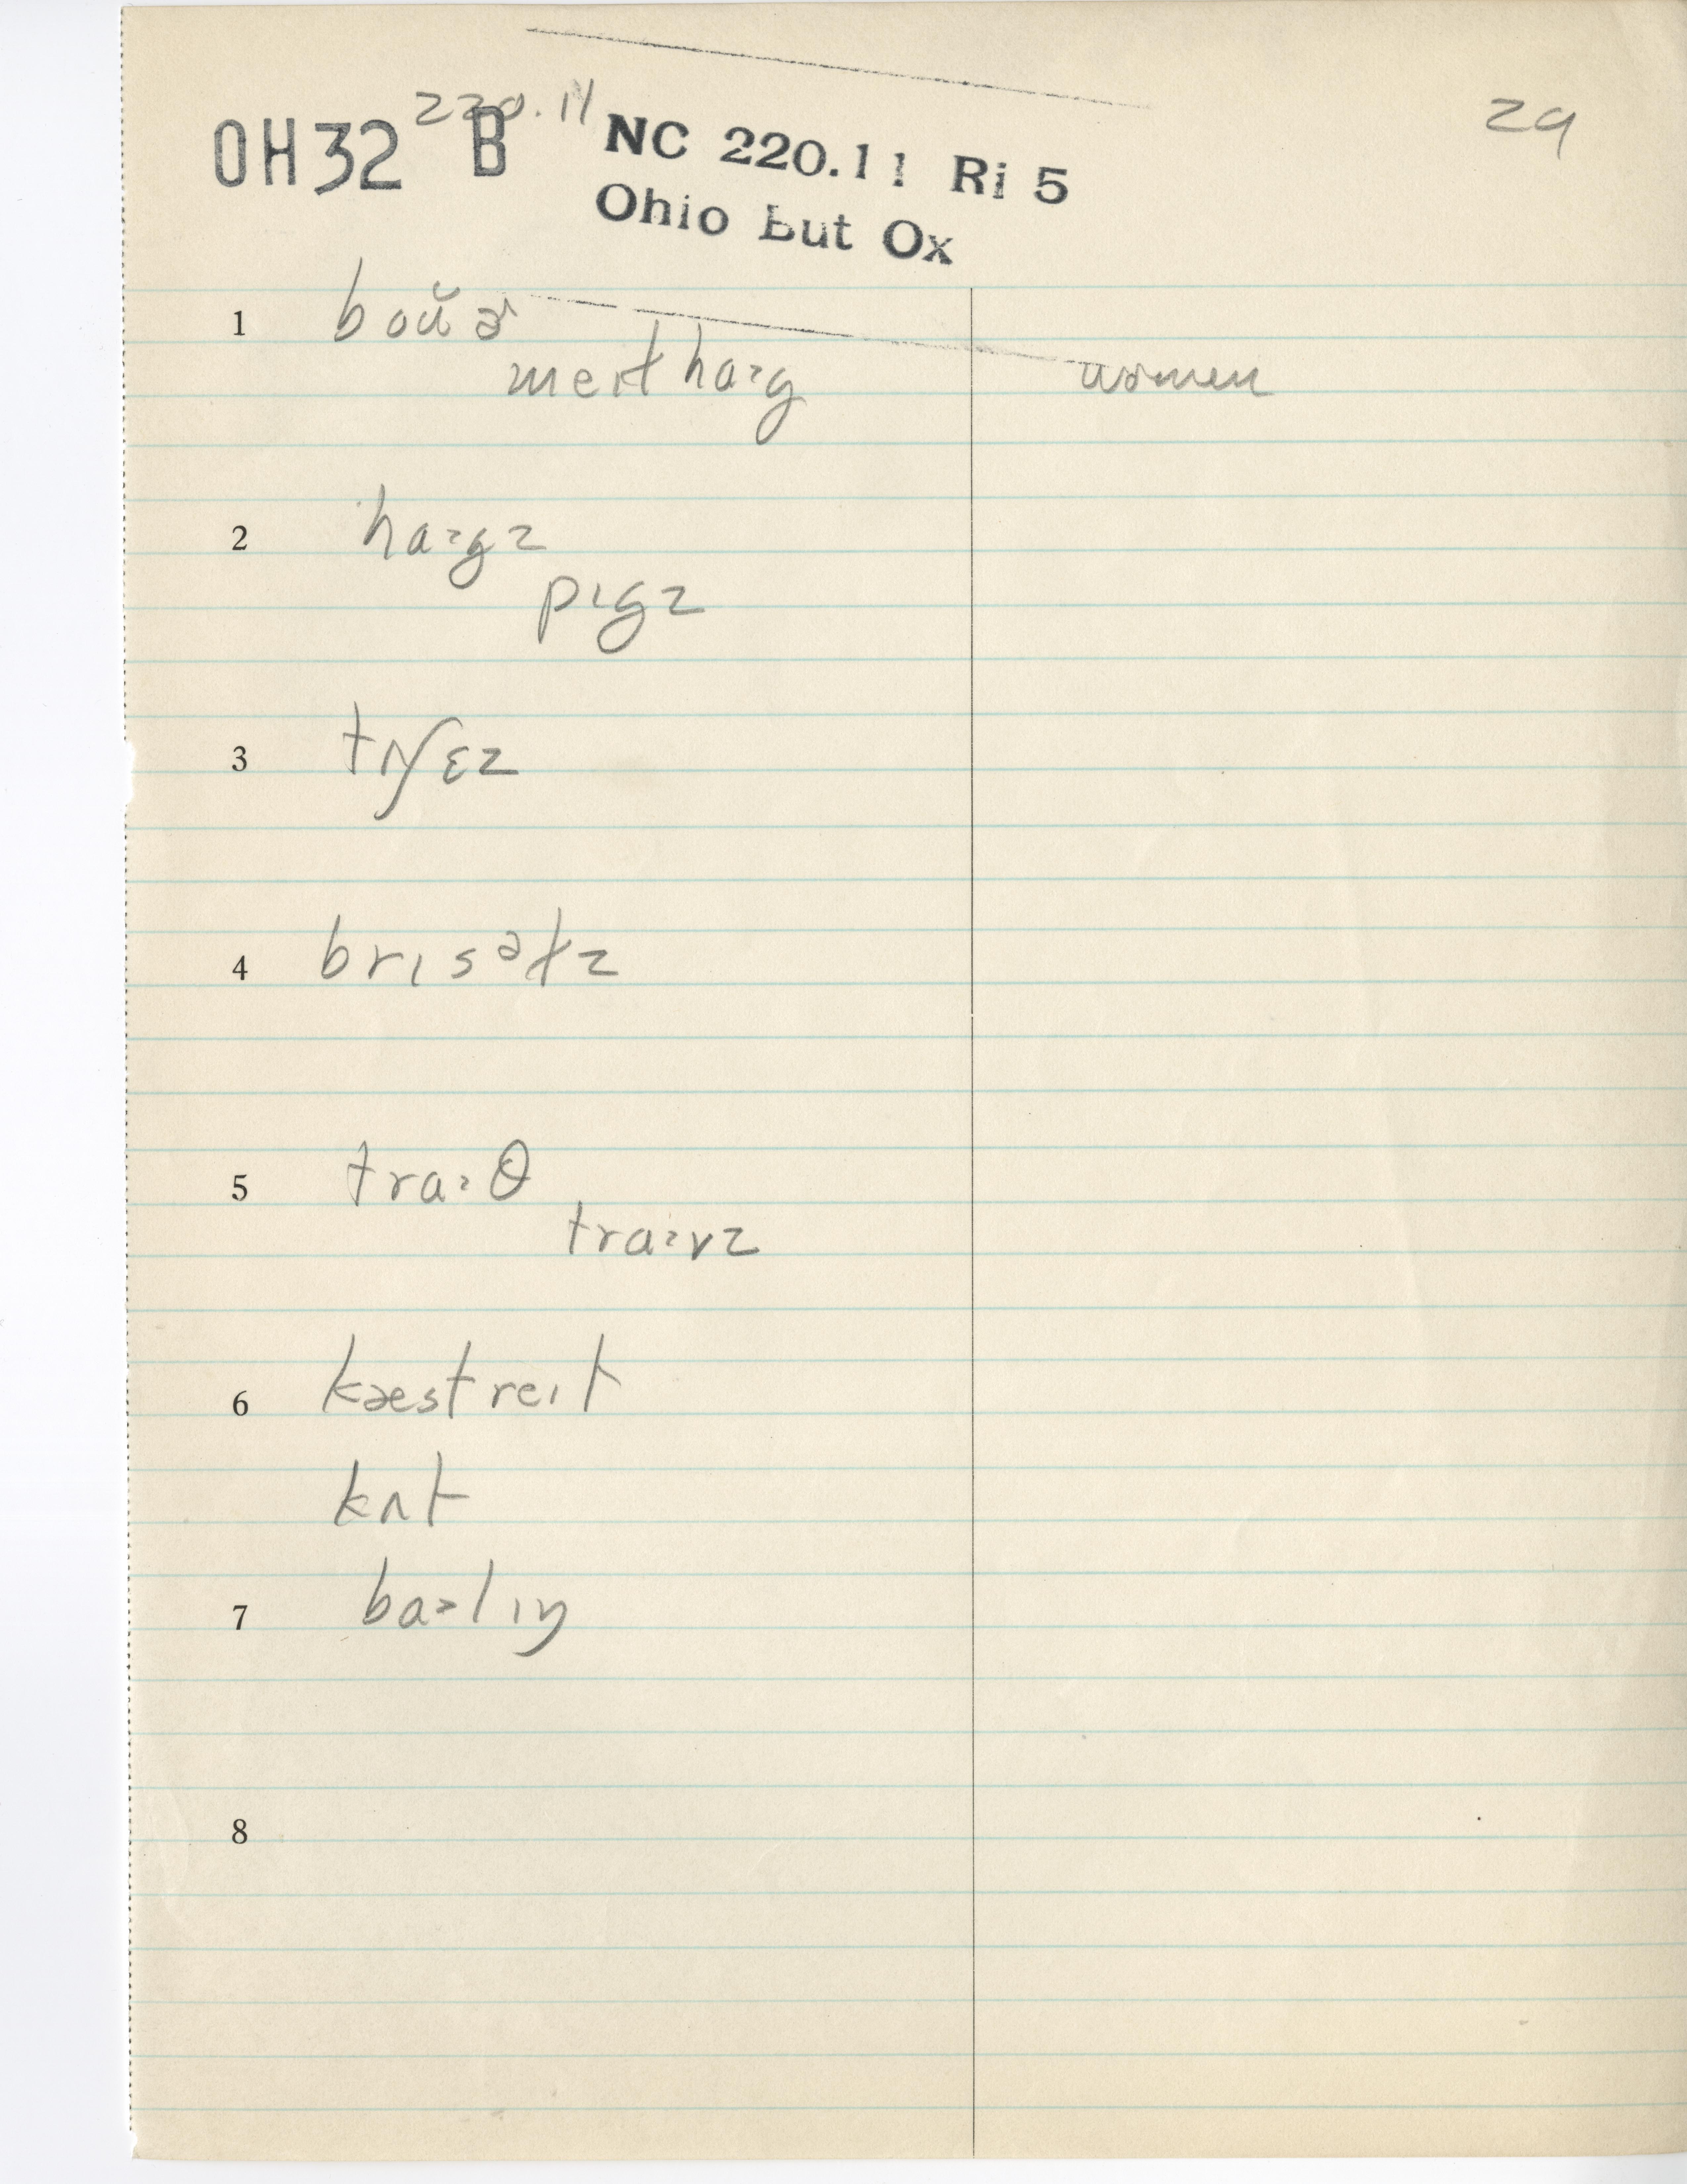 29
220.11
OH32 B
NC 220.11 Ri 5
Ohio But Ox
1 boŭɚ
meɪt haˑg women
2 haˑgz
pɪgz
3 tʌʃɛz
4 brɪsətz
5 traˑθ
traˑvz
6 kæstreɪt
kʌt
7 baˑlɪŋ
8